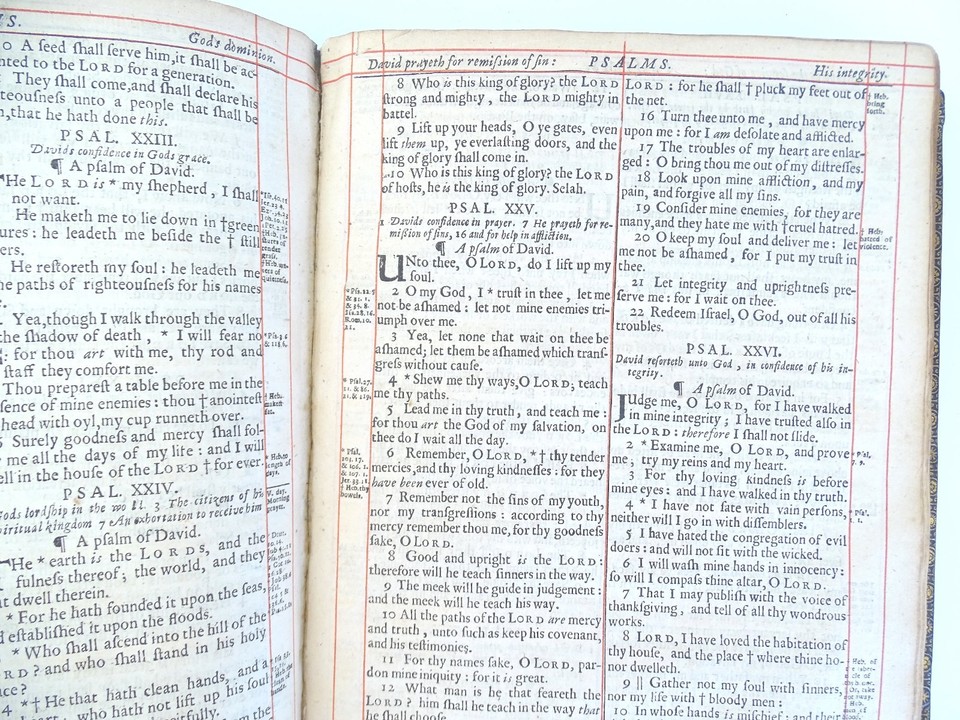 S.
Gods dominion.
o A ſeed ſhall ſerve him, it ſhall be ac-
nted to the LORD for a generation.
They ſhall come, and ſhall declare his
teouſneſs unto a people that ſhall be
n, that he hath done this.
PSAL. XXIII.
Davids confidence in Gods grace.
¶ A pſalm of David.
He LORD is * my ſhepherd, I ſhall
not want.
He maketh me to lie down in † green
ures: he leadeth me beſide the † ſtill
ers.
He reſtoreth my ſoul: he leadeth me
he paths of righteouſneſs for his names
.
Yea, though I walk through the valley
the ſhadow of death, * I will fear no
: for thou art with me, thy rod and
ſtaff they comfort me.
Thou prepareſt a table before me in the
ſence of mine enemies: thou † anointeſt
head with oyl, my cup runneth over.
Surely goodneſs and mercy ſhall fol-
me all the days of my life: and I will
ell in the houſe of the LORD † for ever.
PSAL. XXIV.
Gods lordſhip in the world. 3 The citizens of his
ſpiritual kingdom 7 An exhortation to receive him
¶ A pſalm of David.
He * earth is the LORDS, and the
fulneſs thereof; the world, and they
t dwell therein.
* For he hath founded it upon the ſeas,
d eſtabliſhed it upon the floods.
* Who ſhall aſcend into the hill of the
RD? and who ſhall ſtand in his holy
ace?
4 *† He that hath clean hands, and a
heart, who hath not lift up his ſoul
David prayeth for remiſſion of ſin:
PSALMS.
His integrity.
8 Who is this king of glory? the LORD
ſtrong and mighty, the LORD mighty in
battel.
9 Lift up your heads, O ye gates, even
lift them up, ye everlaſting doors, and the
king of glory ſhall come in.
10 Who is this king of glory? the LORD
of hoſts, he is the king of glory. Selah.
PSAL. XXV.
1 Davids confidence in prayer. 7 He prayeth for re-
miſſion of ſins, 16 and for help in affliction.
¶ A pſalm of David.
UNto thee, O LORD, do I lift up my
ſoul.
2 O my God, I * truſt in thee, let me
not be aſhamed: let not mine enemies tri-
umph over me.
3 Yea, let none that wait on thee be
aſhamed; let them be aſhamed which tranſ-
greſs without cauſe.
4 * Shew me thy ways, O LORD; teach
me thy paths.
5 Lead me in thy truth, and teach me:
for thou art the God of my ſalvation, on
thee do I wait all the day.
6 Remember, O LORD, * † thy tender
mercies, and thy loving kindneſſes: for they
have been ever of old.
7 Remember not the ſins of my youth,
nor my tranſgreſſions: according to thy
mercy remember thou me, for thy goodneſs
ſake, O LORD.
8 Good and upright is the LORD:
therefore will he teach ſinners in the way.
9 The meek will he guide in judgement:
and the meek will he teach his way.
10 All the paths of the LORD are mercy
and truth, unto ſuch as keep his covenant,
and his teſtimonies.
11 For thy names ſake, O LORD, par-
don mine iniquity: for it is great.
12 What man is he that feareth the
LORD? him ſhall he teach in the way that
he ſhall chooſe.
LORD: for he ſhall † pluck my feet out of
the net.
16 Turn thee unto me, and have mercy
upon me: for I am deſolate and afflicted.
17 The troubles of my heart are enlar-
ged: O bring thou me out of my diſtreſſes.
18 Look upon mine affliction, and my
pain, and forgive all my ſins.
19 Conſider mine enemies, for they are
many, and they hate me with † cruel hatred.
20 O keep my ſoul and deliver me: let
me not be aſhamed, for I put my truſt in
thee.
21 Let integrity and uprightneſs pre-
ſerve me: for I wait on thee.
22 Redeem Iſrael, O God, out of all his
troubles.
PSAL. XXVI.
David reſorteth unto God, in confidence of his in-
tegrity.
¶ A pſalm of David.
JUdge me, O LORD, for I have walked
in mine integrity; I have truſted alſo in
the LORD: therefore I ſhall not ſlide.
2 * Examine me, O LORD, and prove
me; try my reins and my heart.
3 For thy loving kindneſs is before
mine eyes: and I have walked in thy truth.
4 * I have not ſate with vain perſons,
neither will I go in with diſſemblers.
5 I have hated the congregation of evil
doers: and will not ſit with the wicked.
6 I will waſh mine hands in innocency:
ſo will I compaſs thine altar, O LORD.
7 That I may publiſh with the voice of
thankſgiving, and tell of all thy wondrous
works.
8 LORD, I have loved the habitation of
thy houſe, and the place † where thine ho-
nor dwelleth.
9 || Gather not my ſoul with ſinners,
nor my life with † bloody men:
10 In whoſe hands is miſchief: and their